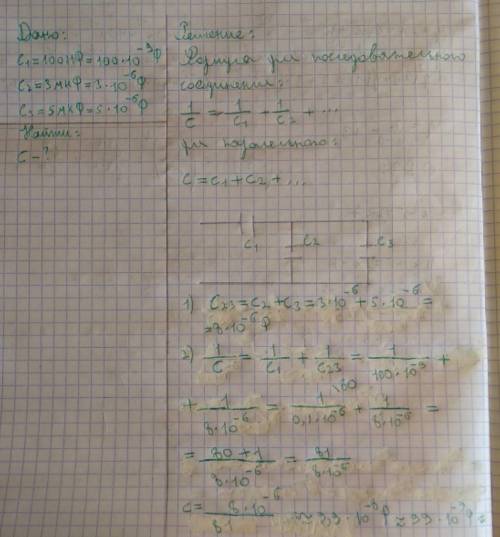 Дано:
C₁=100нФ=100·10⁻⁹Ф
C₂=3мкФ=3·10⁻⁶Ф
C₃=5мкФ=5·10⁻⁶Ф
Найти:
C-?
Решение:
Формула для последовательного
соединения:
1/C = 1/C₁ + 1/C₂ + ...
для паралельного:
C=C₁+C₂+...
C₁ C₂ C₃
1) C₂₃=C₂+C₃=3·10⁻⁶+5·10⁻⁶=
=8·10⁻⁶Ф
2) 1/C = 1/C₁ + 1/C₂₃ = 1/(100·10⁻⁹) +
+ 1/(8·10⁻⁶) = 1\80/(0,1·10⁻⁶) + 1/(8·10⁻⁶) =
= (80+1)/(8·10⁻⁶) = 81/(8·10⁻⁶)
C= (8·10⁻⁶)/81 ≈99·10⁻⁹Ф≈99·10⁻⁹Ф=